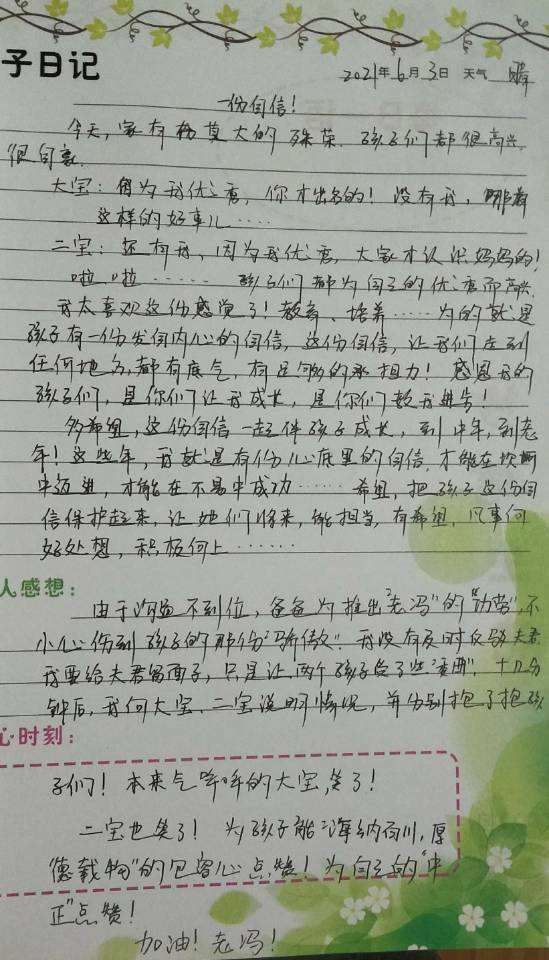 子日记
2021年6月3日 天气 晴
一份自信！
今天，家有份莫大的殊荣．孩子们都很高兴，
很自豪．
大宝：因为我优秀，你才出名的！没有我，哪有
这样的好事儿……
二宝：还有我，因为我优秀，大家才认识妈妈的！
啦，啦…… 孩子们都为自己的优秀而高兴．
我太喜欢这份感觉了！教育、培养……为的就是
孩子有一份发自内心的自信，这份自信，让我们走到
任何地方，都有底气，有足够的承担力！感恩我的
孩子们，是你们让我成长，是你们教我进步！
多希望，这份自信一起伴孩子成长，到中年，到老
年！这些年，我就是有份心底里的自信，才能在坎坷
中迈进，才能在不易中成功……希望，把孩子这份自
信保护起来，让她们将来，能担当，有希望，凡事向
好处想，积极向上……
人感想：
由于沟通不到位，爸爸为推出"老冯"的"功劳"，不
小心伤到孩子的那份"骄傲"．我没有及时反驳夫君，
我要给夫君留面子，只是让两个孩子受了些"委曲"．十几分
钟后，我向大宝、二宝说明情况，并分别抱了抱孩
心时刻：
子们！本来气哼哼的大宝，笑了！
二宝也笑了！为孩子能"海纳百川，厚
德载物"的包容心点赞！为自己的"中
正"点赞！
加油！老冯！